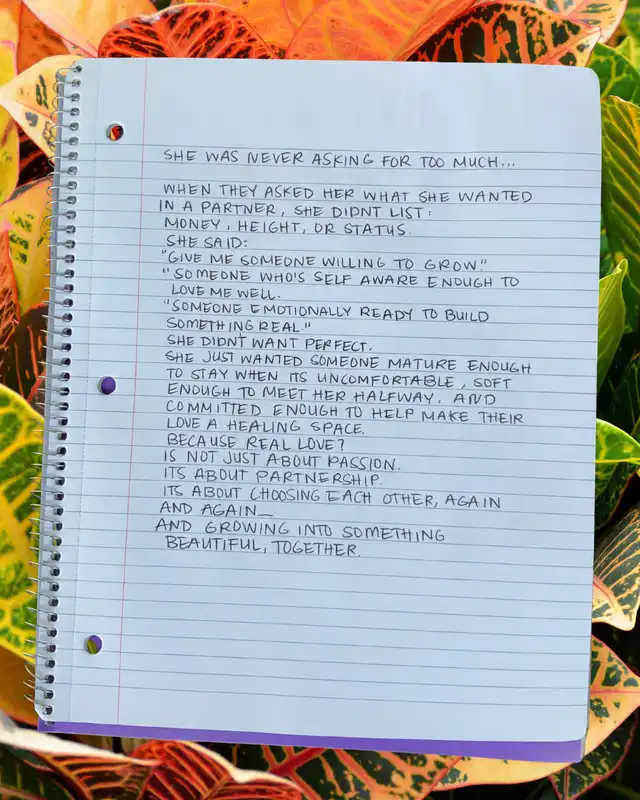 SHE WAS NEVER ASKING FOR TOO MUCH...
WHEN THEY ASKED HER WHAT SHE WANTED
IN A PARTNER, SHE DIDNT LIST:
MONEY, HEIGHT, OR STATUS.
SHE SAID:
"GIVE ME SOMEONE WILLING TO GROW."
"SOMEONE WHO'S SELF AWARE ENOUGH TO
LOVE ME WELL.
"SOMEONE EMOTIONALLY READY TO BUILD
SOMETHING REAL."
SHE DIDN'T WANT PERFECT.
SHE JUST WANTED SOMEONE MATURE ENOUGH
TO STAY WHEN ITS UNCOMFORTABLE, SOFT
ENOUGH TO MEET HER HALFWAY, AND
COMMITTED ENOUGH TO HELP MAKE THEIR
LOVE A HEALING SPACE.
BECAUSE REAL LOVE?
IS NOT JUST ABOUT PASSION.
ITS ABOUT PARTNERSHIP.
ITS ABOUT CHOOSING EACH OTHER, AGAIN
AND AGAIN—
AND GROWING INTO SOMETHING
BEAUTIFUL, TOGETHER.